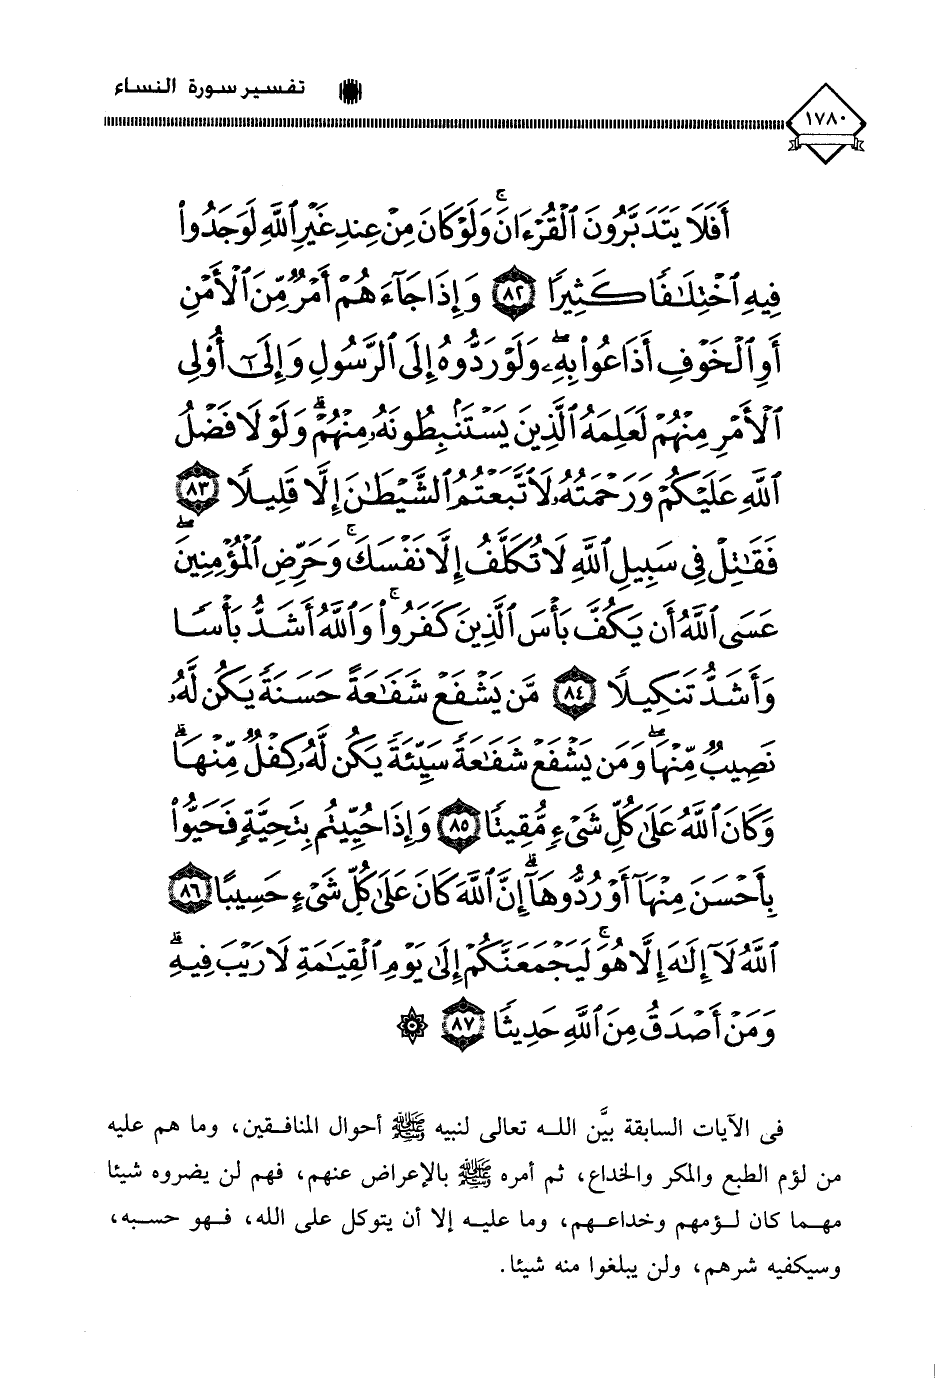 تفسير سورة النساء
١٧٨٠
أَفَلَا يَتَدَبَّرُونَ ٱلْقُرْءَانَ ۚ وَلَوْ كَانَ مِنْ عِندِ غَيْرِ ٱللَّهِ لَوَجَدُوا۟
فِيهِ ٱخْتِلَٰفًا كَثِيرًا ٨٢ وَإِذَا جَآءَهُمْ أَمْرٌ مِّنَ ٱلْأَمْنِ
أَوِ ٱلْخَوْفِ أَذَاعُوا۟ بِهِۦ ۖ وَلَوْ رَدُّوهُ إِلَى ٱلرَّسُولِ وَإِلَىٰٓ أُو۟لِى
ٱلْأَمْرِ مِنْهُمْ لَعَلِمَهُ ٱلَّذِينَ يَسْتَنۢبِطُونَهُۥ مِنْهُمْ ۗ وَلَوْلَا فَضْلُ
ٱللَّهِ عَلَيْكُمْ وَرَحْمَتُهُۥ لَٱتَّبَعْتُمُ ٱلشَّيْطَٰنَ إِلَّا قَلِيلًا ٨٣
فَقَٰتِلْ فِى سَبِيلِ ٱللَّهِ لَا تُكَلَّفُ إِلَّا نَفْسَكَ ۚ وَحَرِّضِ ٱلْمُؤْمِنِينَ ۖ
عَسَى ٱللَّهُ أَن يَكُفَّ بَأْسَ ٱلَّذِينَ كَفَرُوا۟ ۚ وَٱللَّهُ أَشَدُّ بَأْسًا
وَأَشَدُّ تَنكِيلًا ٨٤ مَّن يَشْفَعْ شَفَٰعَةً حَسَنَةً يَكُن لَّهُۥ
نَصِيبٌ مِّنْهَا ۖ وَمَن يَشْفَعْ شَفَٰعَةً سَيِّئَةً يَكُن لَّهُۥ كِفْلٌ مِّنْهَا ۗ
وَكَانَ ٱللَّهُ عَلَىٰ كُلِّ شَىْءٍ مُّقِيتًا ٨٥ وَإِذَا حُيِّيتُم بِتَحِيَّةٍ فَحَيُّوا۟
بِأَحْسَنَ مِنْهَآ أَوْ رُدُّوهَآ ۗ إِنَّ ٱللَّهَ كَانَ عَلَىٰ كُلِّ شَىْءٍ حَسِيبًا ٨٦
ٱللَّهُ لَآ إِلَٰهَ إِلَّا هُوَ ۚ لَيَجْمَعَنَّكُمْ إِلَىٰ يَوْمِ ٱلْقِيَٰمَةِ لَا رَيْبَ فِيهِ ۗ
وَمَنْ أَصْدَقُ مِنَ ٱللَّهِ حَدِيثًا ٨٧
فى الآيات السابقة بيَّن اللـه تعالى لنبيه ﷺ أحوال المنافـقين، وما هم عليه
من لؤم الطبع والمكر والخداع، ثم أمره ﷺ بالإعراض عنهم، فهم لن يضروه شيئا
مهـما كان لـؤمهم وخداعـهم، وما عليـه إلا أن يتوكل على الله، فـهو حسبه،
وسيكفيه شرهم، ولن يبلغوا منه شيئا.